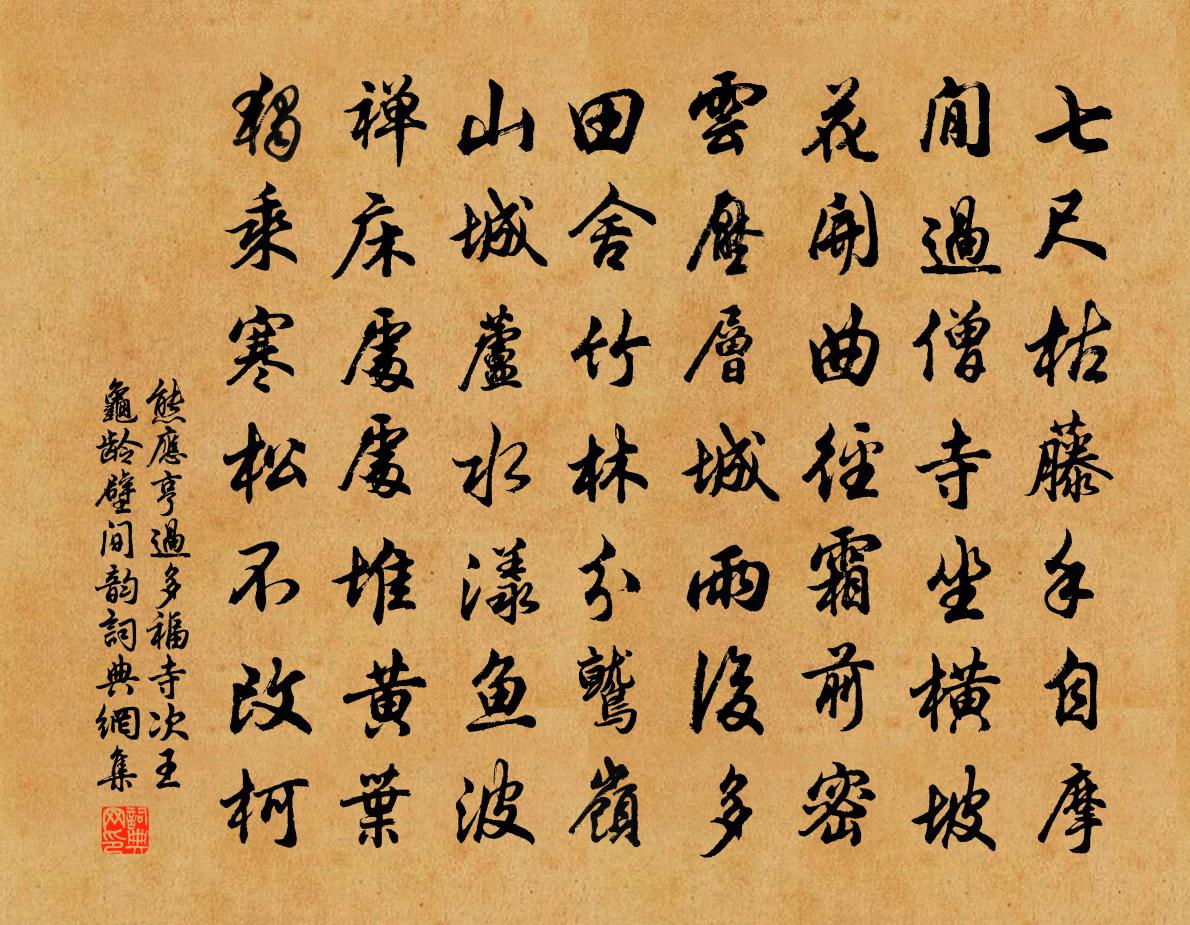 七尺枯藤手自摩
閒過僧寺坐橫坡
花開曲徑霜前密
雲壓層城雨後多
田舍竹林分鷲嶺
山城蘆水漾魚波
禅床處處堆黃葉
獨乘寒松不改柯
熊應亨過多福寺次王
龜齡壁间韵詞典網集
詞典
网印